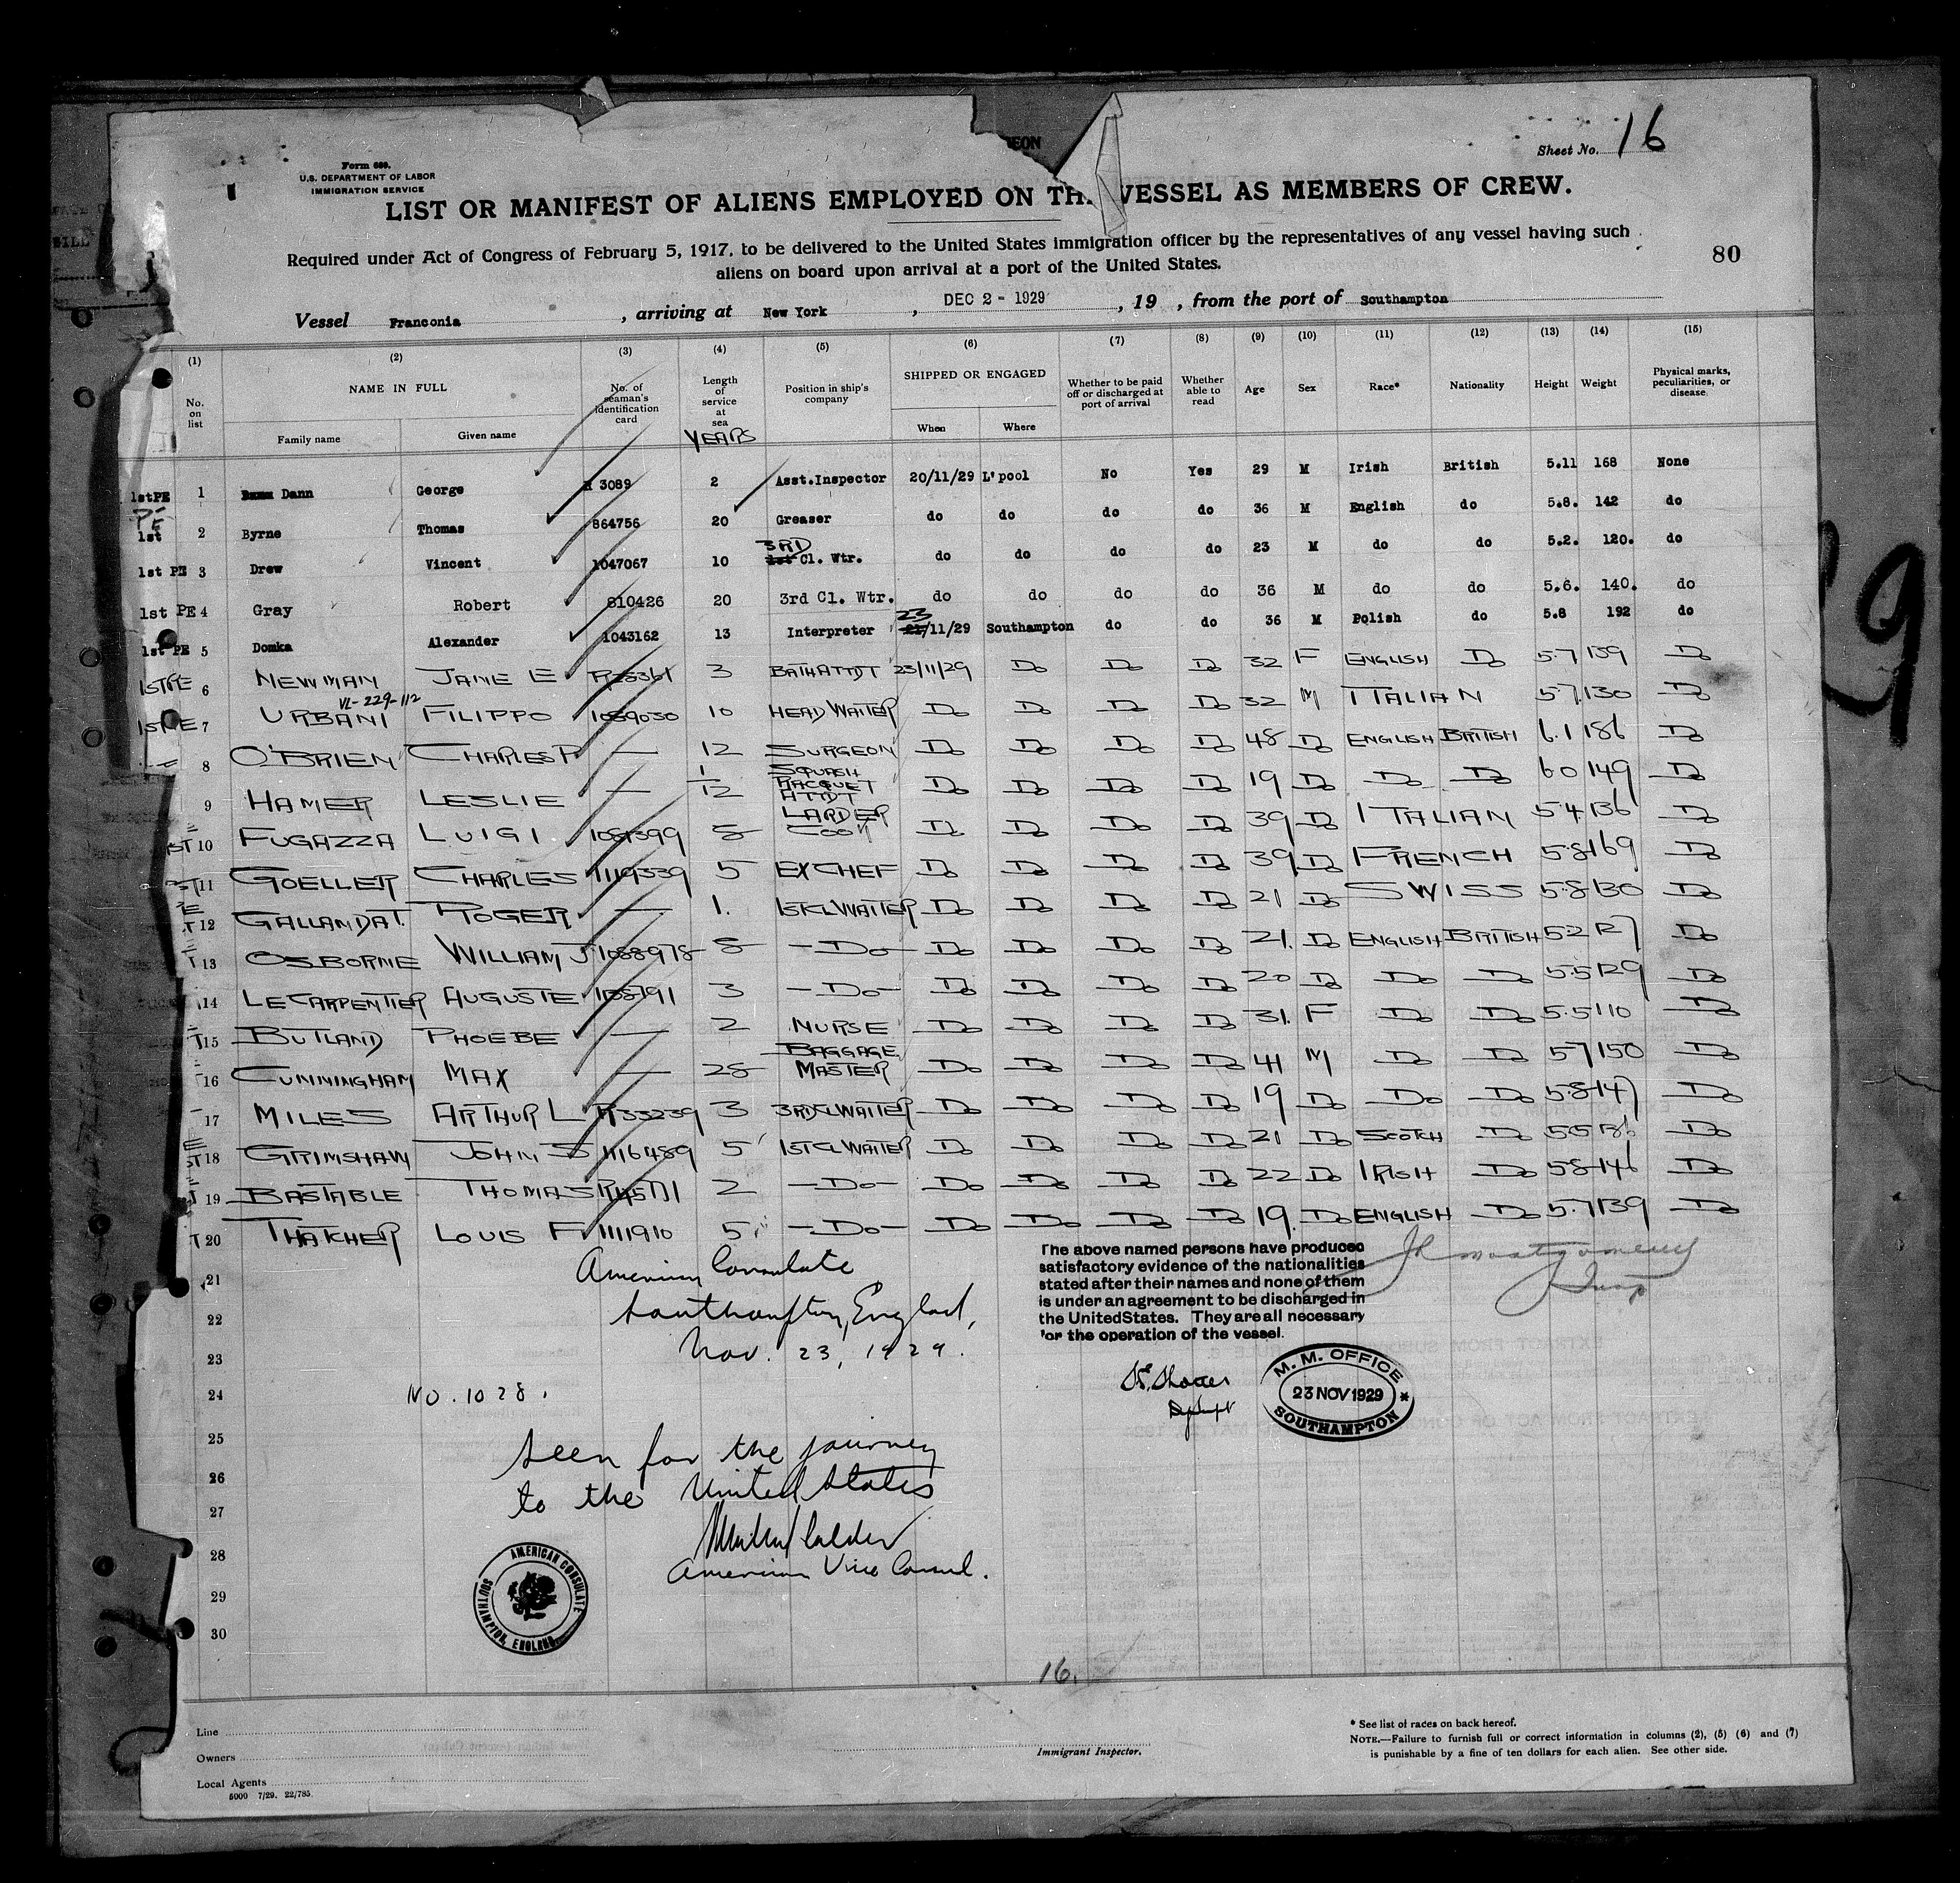 Sheet No. 16
Form 680.
U.S. DEPARTMENT OF LABOR
IMMIGRATION SERVICE
LIST OR MANIFEST OF ALIENS EMPLOYED ON THE VESSEL AS MEMBERS OF CREW.
Required under Act of Congress of February 5, 1917, to be delivered to the United States immigration officer by the representatives of any vessel having such
aliens on board upon arrival at a port of the United States.
80
Vessel Franconia, arriving at New York, DEC 2 - 1929, 19 , from the port of Southampton
(1) (2) (3) (4) (5) (6) (7) (8) (9) (10) (11) (12) (13) (14) (15)
No. on list NAME IN FULL Family name Given name No. of seaman's identification card Length of service at sea YEARS Position in ship's company SHIPPED OR ENGAGED When Where Whether to be paid off or discharged at port of arrival Whether able to read Age Sex Race* Nationality Height Weight Physical marks, peculiarities, or disease
1st PE 1 Dann George R 3089 2 Asst.Inspector 20/11/29 L'pool No Yes 29 M Irish British 5.11 168 None
PE 1st 2 Byrne Thomas 864756 20 Greaser do do do do 36 M English do 5.8. 142 do
1st PE 3 Drew Vincent 1047067 10 3RD 1st Cl. Wtr. do do do do 23 M do do 5.2. 120. do
1st PE 4 Gray Robert 810426 20 3rd Cl. Wtr. do do do do 36 M do do 5.6. 140. do
1st PE 5 Domka Alexander 1043162 13 Interpreter 23/11/29 Southampton do do 36 M Polish do 5.8 192 do
1ST PE 6 NEWMAN JANE E 3 BATH ATTDT 23/11/29 Do Do Do 32 F ENGLISH Do 5.7 139 Do
VL-229-112
1ST PE 7 URBANI FILIPPO 1089030 10 HEAD WAITER Do Do Do Do 32 M ITALIAN 5.7 130 Do
8 O'BRIEN CHARLES P — 12 SURGEON Do Do Do Do 48 Do ENGLISH BRITISH 6.1 186 Do
9 HAMER LESLIE — 1/12 SQUASH RACQUET ATTDT Do Do Do Do 19 Do Do Do 6 0 149 Do
ST 10 FUGAZZA LUIGI 1089399 8 LARDER COOK Do Do Do Do 39 Do ITALIAN 5.4 136 Do
ST 11 GOELLER CHARLES 1119339 5 EX CHEF Do Do Do Do 39 Do FRENCH 5.8 169 Do
12 GALLANDAT. ROGER — 1. 1ST CL WAITER Do Do Do Do 21 Do SWISS 5.8 130 Do
T 13 OSBORNE WILLIAM J 1088978 8 —Do— Do Do Do Do 21. Do ENGLISH BRITISH 5.2 127 Do
14 LE CARPENTIER AUGUSTE 3 —Do— Do Do Do Do 20 Do Do Do 5.5 129 Do
T 15 BUTLAND PHOEBE — 2 NURSE Do Do Do Do 31. F Do Do 5.5 110 Do
T 16 CUNNINGHAM MAX — 28 BAGGAGE MASTER Do Do Do Do 41 M Do Do 5.7 150 Do
17 MILES ARTHUR L R33239 3 3RD CL WAITER Do Do Do Do 19 Do Do Do 5.8 147 Do
ST 18 GRIMSHAW JOHN S 1116489 5 1ST CL WAITER Do Do Do Do 21 Do SCOTCH Do 5.5 136 Do
T 19 BASTABLE THOMAS 2 —Do— Do Do Do Do 22 Do IRISH Do 5.8 146 Do
T 20 THATCHER LOUIS F 1111910 5. —Do— Do Do Do Do 19. Do ENGLISH Do 5.7 139 Do
21 American Consulate
22 Southampton, England,
23 Nov. 23, 1929.
24 NO. 1028.
25 Seen for the journey
26 to the United States
27
28 American Vice Consul.
29
30
The above named persons have produced
satisfactory evidence of the nationalities
stated after their names and none of them
is under an agreement to be discharged in
the United States. They are all necessary
for the operation of the vessel.
JR Montgomery
Insp
M. M. OFFICE
23 NOV 1929
SOUTHAMPTON
AMERICAN CONSULATE
SOUTHAMPTON, ENGLAND
16.
Line
Owners
Local Agents
5000 7/29. 22/785
Immigrant Inspector.
* See list of races on back hereof.
NOTE.—Failure to furnish full or correct information in columns (2), (5) (6) and (7)
is punishable by a fine of ten dollars for each alien. See other side.